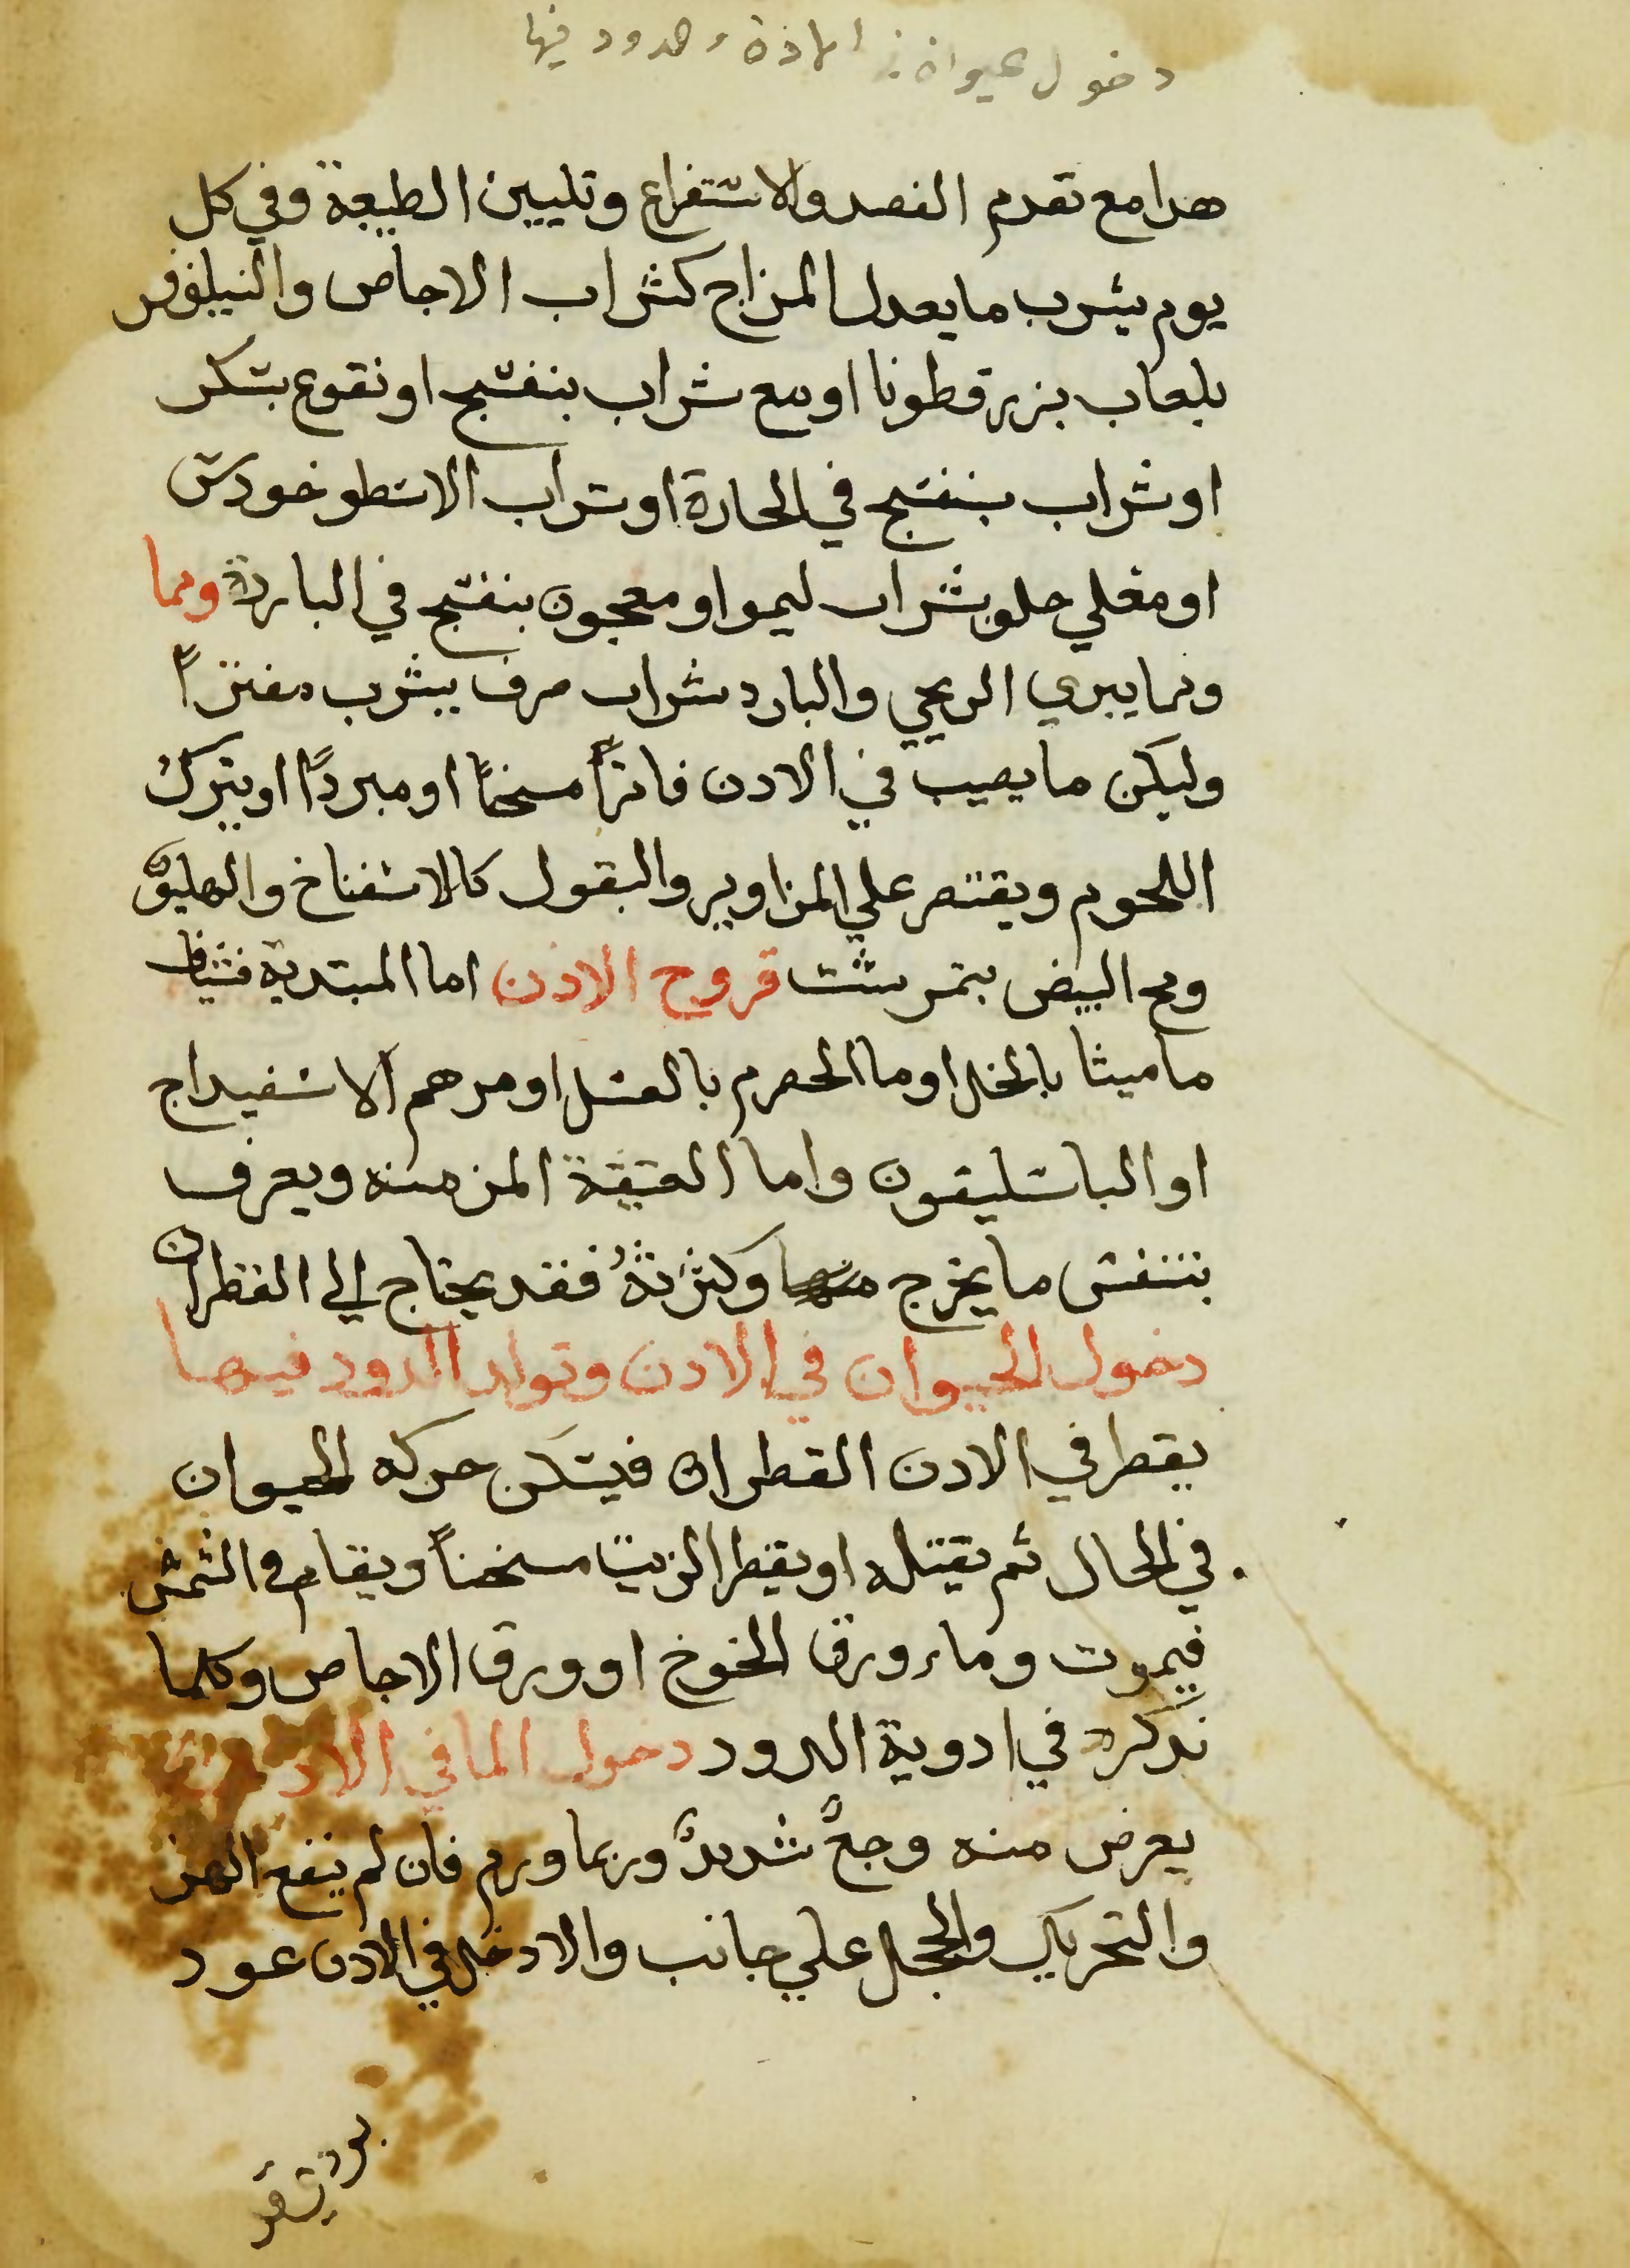 دخول حيوان في الاذن والدود فيها
هدا مع تقدم الفصد والاستفراع وتليين الطبيعة وفي كل
يوم يشرب ما يعدل المزاج كشراب الاجاص والنيلوفر
بلعاب بزر قطونا او مع شراب بنفسج او نقوع بسكر
او شراب بنفسج في الحارة او شراب الاسطوخودس
او مغلي حلو بشراب ليمو او معجون بنفسج في الباردة ومما
ومما يبري الريحي والبارد شراب صرف يشرب مفترًا
وليكن ما يصب في الادن فاترًا مسخنًا او مبردًا او يترك
اللحوم ويقتصر علي المزاوير والبقول كالاسفناخ والهليون
ومح البيض بتمرست قروح الاذن اما المبتدية فشياف
ماميثا بالخل او ما الحصرم بالعسل او مرهم الاسفيداج
او الباسليقون واما العتيقة المزمنه ويعرف
بنتنفس ما يخرج منها وكثرتهُ فقد يحتاج الي القطران
دخول الحيوان في الادن وتولد الدود فيها
يقطر في الادن القطران فيسكن حركه الحيوان
في الحال ثم يقتله او يقطر الزيت مسخنًا ويقام في الشمس
فيموت وماء ورق الخوخ او ورق الاجاص وكلما
نذكره في ادوية الدود دخول الما في الادن
يعرض منه وجعٌ شديدٌ وربما ورم فان لم ينفع الهز
والتحريك والحجل علي جانب والا ادخل في الادن عود